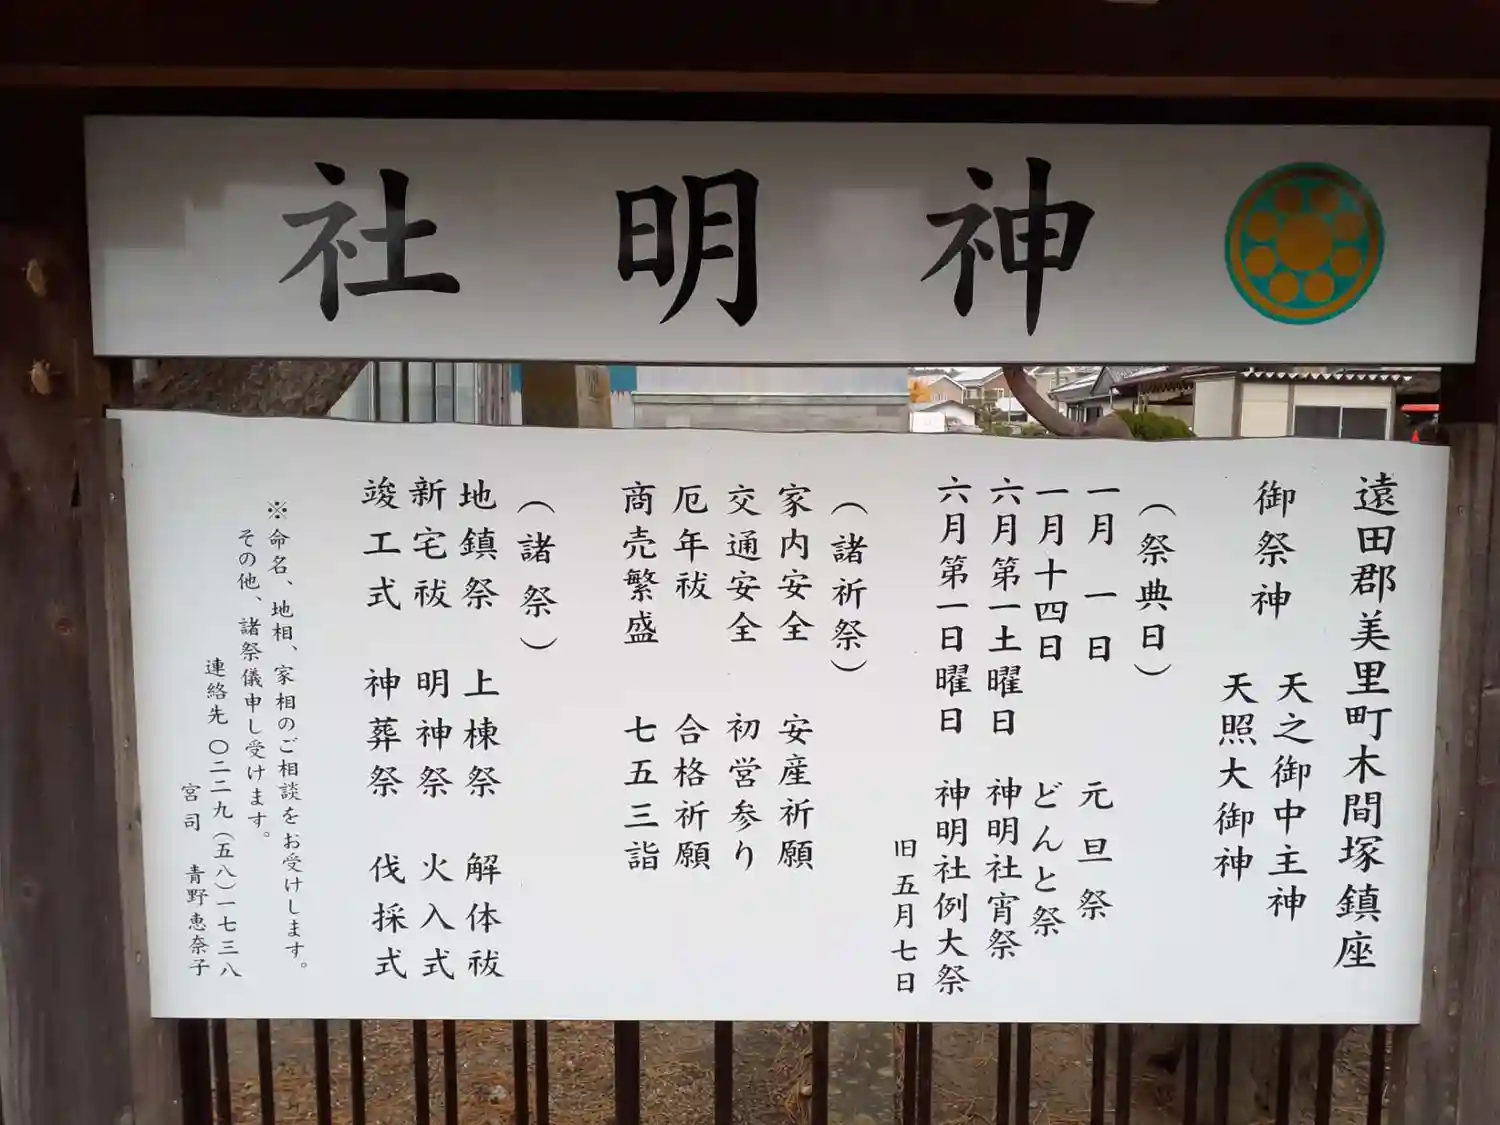 神明社
遠田郡美里町木間塚鎮座
御祭神 天之御中主神
天照大御神
（祭典日）
一月一日 元旦祭
一月十四日 どんと祭
六月第一土曜日 神明社宵祭
六月第一日曜日 神明社例大祭
旧五月七日
（諸祈祭）
家内安全 安産祈願
交通安全 初営参り
厄年祓 合格祈願
商売繁盛 七五三詣
（諸祭）
地鎮祭 上棟祭 解体祓
新宅祓 明神祭 火入式
竣工式 神葬祭 伐採式
※命名、地相、家相のご相談をお受けします。
その他、諸祭儀申し受けます。
連絡先 〇二二九（五八）一七三八
宮司 青野恵奈子